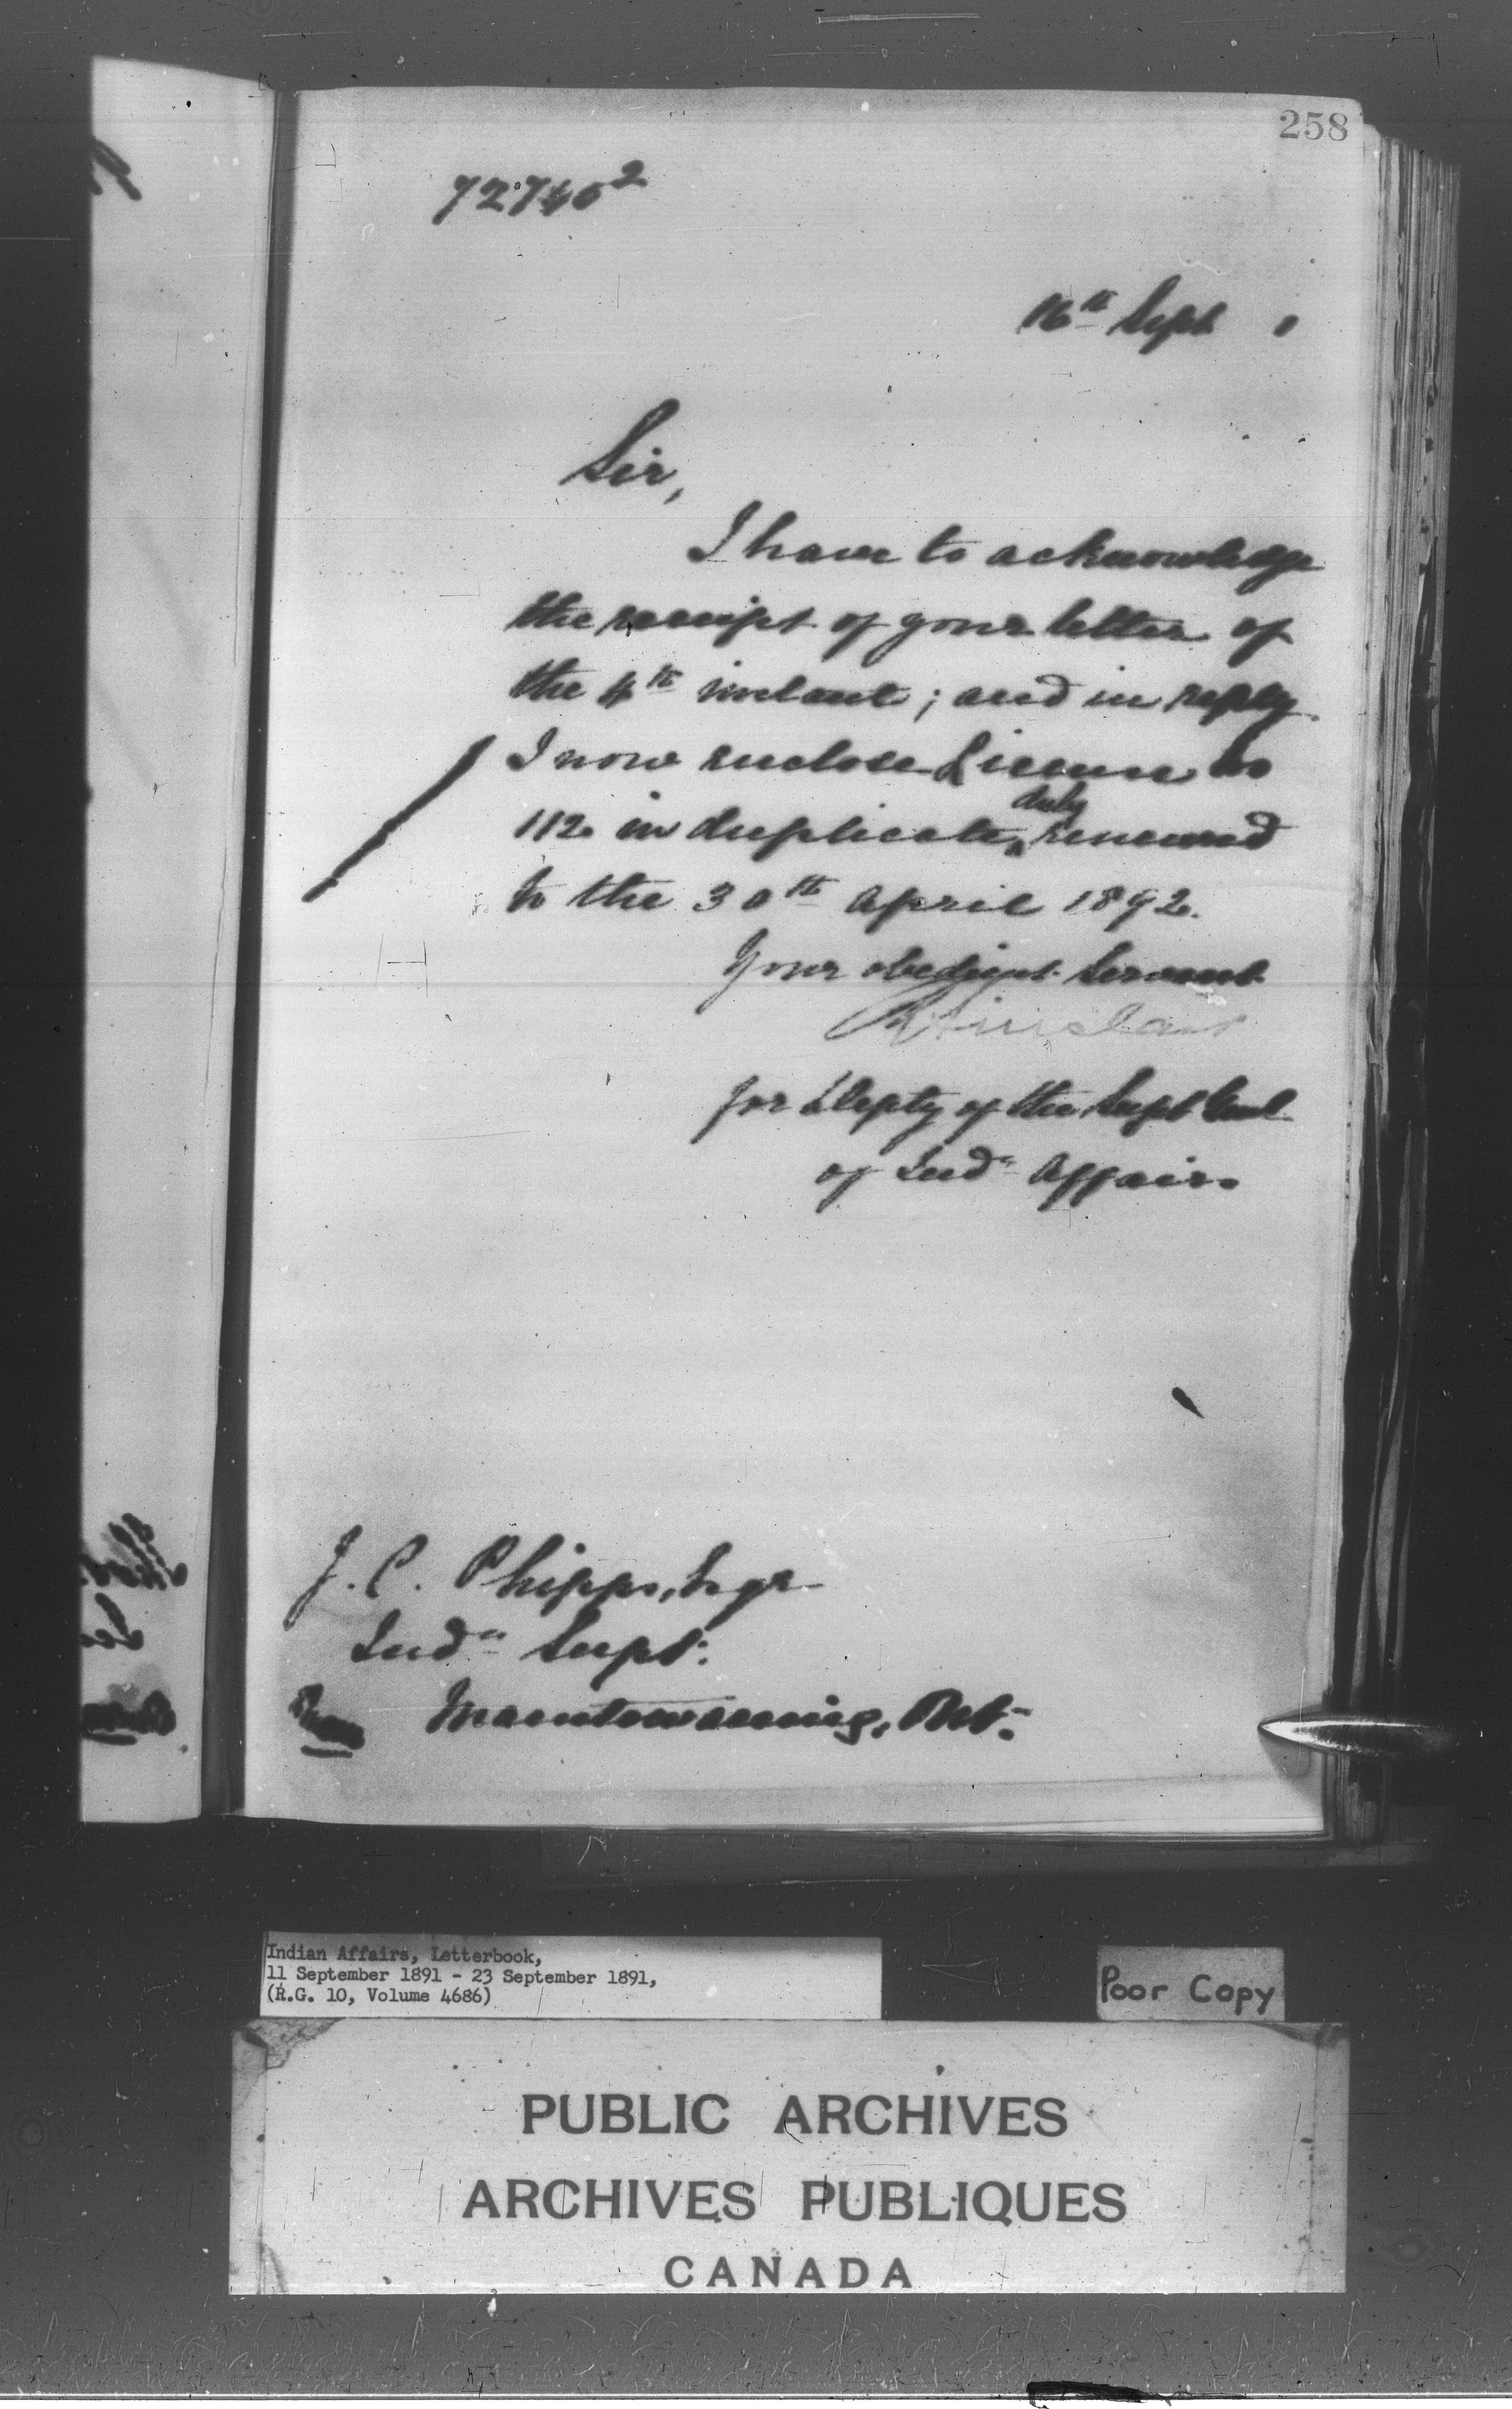 258
72740²
16th Sept 1
Sir,
I have to acknowledge
the receipt of your letter of
the 4th instant; and in reply
I now enclose License No
112 in duplicate, duly renewed
to the 30th April 1892.
Your obedient servant
R Sinclair
for Depty of the Supt Genl
of Indn Affairs
J. C. Phipps, Esqr
Indn Supt.
Manitowaning, Ont.
Indian Affairs, Letterbook,
11 September 1891 - 23 September 1891,
(R.G. 10, Volume 4686)
Poor Copy
PUBLIC ARCHIVES
ARCHIVES PUBLIQUES
CANADA